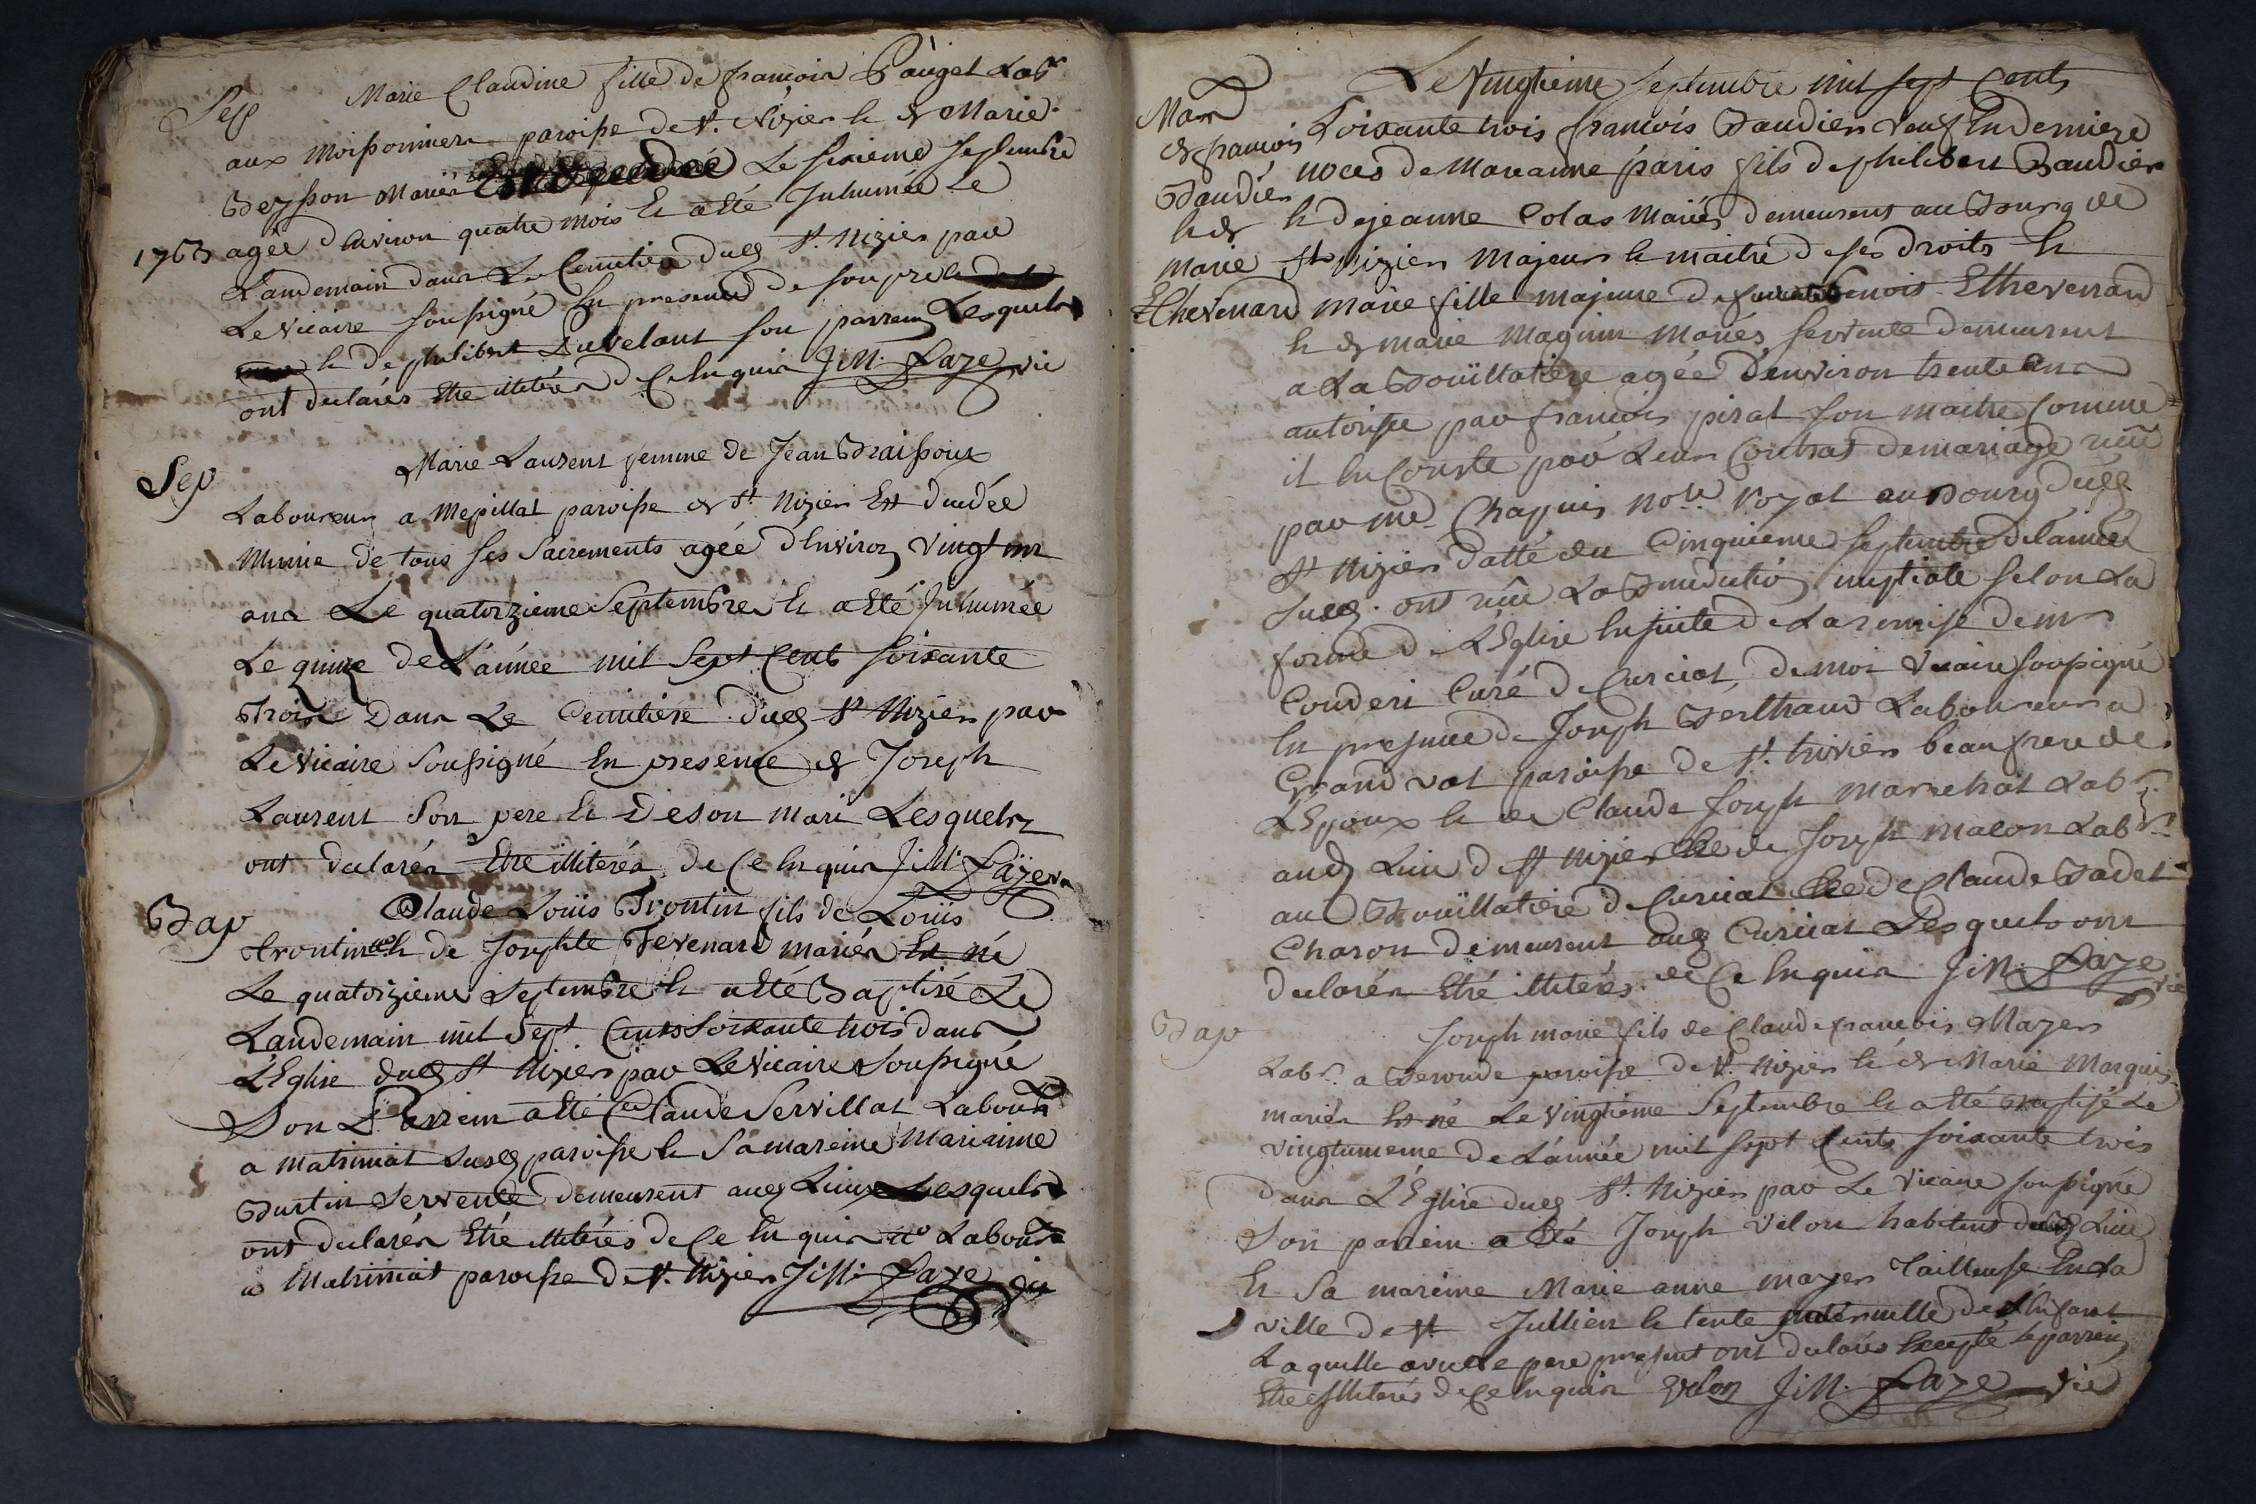 Sep
Marie Claudine fille de francois Pauget Labr
aux moissonniers paroisse de st. Nizier et de Marie
Beysson Mariés Est decedée Le sixieme septembre
1763 agée d'Environ quatre mois et a Eté Inhumée Le
Landemain dans Le Cemitiere dudt st. Nizier par
Le vicaire soussigné En presence de son pere
et de philibert Puvelant son parrein Lesquels
ont declarés Etre illiterés de Ce Enquis J.M. Faye vic
Sep
Marie Laurent femme de Jean Braissoux
Laboureur a Mepillat paroisse de st Nizier Est decedée
Munie de tous ses Sacrements agée d'Environ vingt
ans Le quatorzieme Septembre Et a Eté Inhumée
Le quinze de L'année mil Sept Cents soixante
Trois Dans Le Cemitiere dudt st Nizier par
Le Vicaire Soussigné En presence de Joseph
Laurent Son pere Et De son mari Lesquels
ont declarés Etre illiterés de Ce Enquis J.M. Faye v
Bap
Claude Loüis Trontin fils de Loüis
trontin et de Josephte Tevenard mariés Est né
Le quatorzieme Septembre Et a Eté Baptisé Le
Landemain mil Sept Cents Soixante trois dans
L'Eglise dudt st Nizier par Le Vicaire Soussigné
Son Parrein a Eté Claude Servillat Labour
a matrimat susdt paroisse et Sa mareine Mariaime
Burtin Servente demeurent audt Lieu Lesquels
ont declarés Etre illiterés de Ce Enquis Labour
a Matrimat paroisse de st. Nizier J.M. Faye vic
Le Vingtieme septembre mil sept Cents
Mar
de francois
Baudier
et de
marie
Ethevenard
Soixante trois francois Baudier veuf En derniere
noces de Marianne paris fils de philibert Baudier
et de jeanne Colas Mariés demeurent au Bourg de
st Nizier Majeur et maitre de ses droits Et
Marie fille majeure de benoit Ethevenard
et de marie Magnin mariés servente demeurent
a La Boüillatiere agée d'environ trente ans
autorisée par francois pirat son maitre Comme
il En Conste par Leur Contrat de mariage reçu
par me Chapuis nore royal au Bourg dudt
st Nizier datté du Cinquieme septembre de l'année
susdt. ont reçu La Benediction nuptiale selon La
forme de L'Eglise Ensuite de La remise de mr
Couderi Curé de Curciat, de moi vicaire soussigné
En presence de Joseph Berthaud Laboureur a
Grand val paroisse de st. trivier beaufrere de
L'Epoux et de Claude Joseph Marechal Labr.
audt Lieu de st Nizier Et de Joseph malon Labr.
au Boüillatiere de Curciat Et de Claude Badet
Charon demeurent audt Curciat Lesquels ont
declarés Etre illiterés de Ce Enquis J.M. Faye vic
Bap
Joseph marie fils de Claude francois Mayer
Labr. a Beroude paroisse de st. Nizier et de Marie Marquis
mariés Est né Le vingtieme Septembre et a Eté Baptisé Le
vingtunieme de L'année mil sept Cents soixante trois
dans L'Eglise dudt st. Nizier par Le vicaire soussigné
Son parrein a Eté Joseph velon habitant dudt Lieu
Et Sa mareine Marie anne mayer tailleuse En La
ville de st Jullien et tente paternelle de L'Enfant
Laquelle avec Le pere present ont declarés Excepté Le parrein
Etre illiterés de Ce Enquis velon J.M. Faye vic